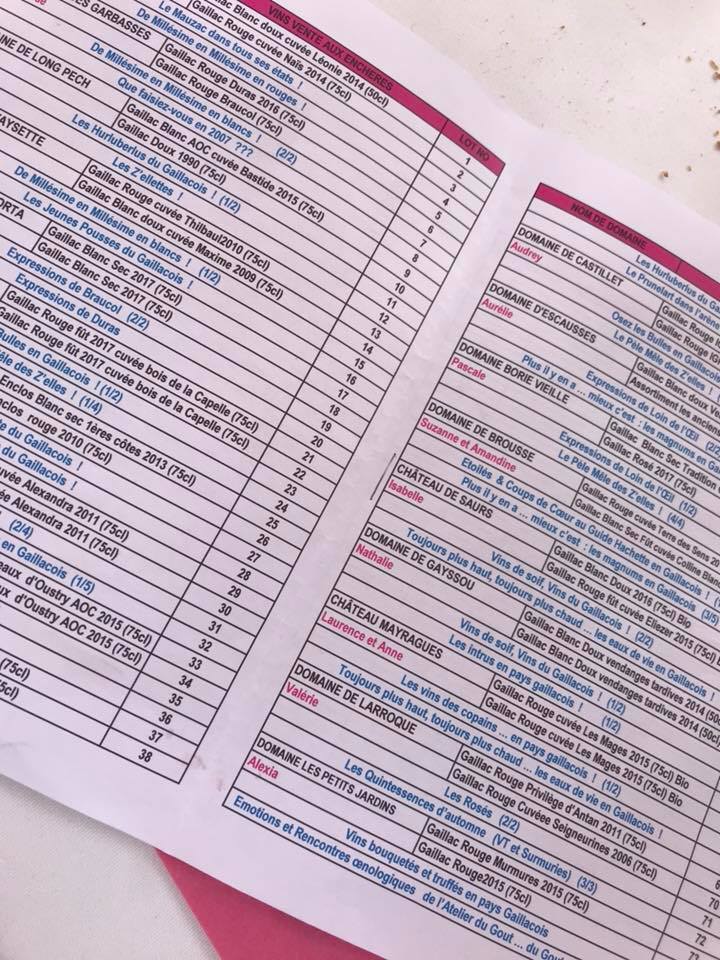 VINS VENTE AUX ENCHERES
LOT NO
Blanc doux cuvée Léonie 2014 (50cl)
Gaillac Rouge cuvée Naïs 2014 (75cl)
Le Mauzac dans tous ses états !
De Millésime en Millésime en rouges !
GARBASSES
Gaillac Rouge Duras 2016 (75cl)
Gaillac Rouge Braucol (75cl)
De Millésime en Millésime en blancs !
Que faisiez-vous en 2007 ??? (2/2)
DE LONG PECH
Gaillac Blanc AOC cuvée Bastide 2015 (75cl)
Gaillac Doux 1990 (75cl)
Les Hurluberlus du Gaillacois ! (1/2)
Les Z'ellettes !
AYSETTE
Gaillac Rouge cuvée Thibaul2010 (75cl)
Gaillac Blanc doux cuvée Maxime 2009 (75cl)
De Millésime en Millésime en blancs ! (1/2)
Les Jeunes Pousses du Gaillacois !
ORTA
Gaillac Blanc Sec 2017 (75cl)
Gaillac Blanc Sec 2017 (75cl)
Expressions de Braucol (2/2)
Expressions de Duras
Gaillac Rouge fût 2017 cuvée bois de la Capelle (75cl)
Gaillac Rouge fût 2017 cuvée bois de la Capelle (75cl)
Bulles en Gaillacois ! (1/2)
Mêle des Z'elles ! (1/4)
Enclos Blanc sec 1ères côtes 2013 (75cl)
rouge 2010 (75cl)
du Gaillacois !
du Gaillacois !
Alexandra 2011 (75cl)
Alexandra 2011 (75cl)
(2/4)
en Gaillacois (1/5)
d'Oustry AOC 2015 (75cl)
d'Oustry AOC 2015 (75cl)
(75cl)
1
2
3
4
5
6
7
8
9
10
11
12
13
14
15
16
17
18
19
20
21
22
23
24
25
26
27
28
29
30
31
32
33
34
35
36
37
38
NOM DE DOMAINE
Les Hurluberlus du
Le Prunelart dans
DOMAINE DE CASTILLET
Audrey
Gaillac Rouge
Gaillac Rouge
Osez les Bulles en Gaillacois
Le Pèle Mêle des Z'elles !
DOMAINE D'ESCAUSSES
Aurélie
Gaillac Blanc doux
Assortiment les
Expressions de Loin de l'Œil (2/2)
Plus il y en a ... mieux c'est : les magnums en
DOMAINE BORIE VIEILLE
Pascale
Gaillac Blanc Sec Tradition
Gaillac Rosé 2017 (75cl)
Expressions de Loin de l'Œil (1/2)
Le Pèle Mêle des Z'elles ! (4/4)
DOMAINE DE BROUSSE
Suzanne et Amandine
Gaillac Rouge cuvée Terra des Sens
Gaillac Blanc Sec Fût cuvée Colline
Etoilés & Coups de Cœur au Guide Hachette en Gaillacois !
Plus il y en a ... mieux c'est : les magnums en Gaillacois (3/5)
CHÂTEAU DE SAURS
Isabelle
Gaillac Blanc Doux 2016 (75cl) Bio
Gaillac Rouge fût cuvée Eliezer 2015 (75cl)
Vins de soif, Vins du Gaillacois ! (2/2)
Toujours plus haut, toujours plus chaud ... les eaux de vie en Gaillacois !
DOMAINE DE GAYSSOU
Nathalie
Gaillac Blanc Doux vendanges tardives 2014
Gaillac Blanc Doux vendanges tardives 2014
Vins de soif, Vins du Gaillacois ! (1/2)
Les intrus en pays gaillacois ! (1/2)
CHÂTEAU MAYRAGUES
Laurence et Anne
Gaillac Rouge cuvée Les Mages 2015 (75cl) Bio
Gaillac Rouge cuvée Les Mages 2015 (75cl) Bio
Les vins des copains ... en pays gaillacois ! (1/2)
Toujours plus haut, toujours plus chaud ... les eaux de vie en Gaillacois !
DOMAINE DE LARROQUE
Valérie
Gaillac Rouge Privilège d'Antan 2011 (75cl)
Gaillac Rouge Cuvéee Seigneurines 2006 (75cl)
Les Quintessences d'automne (VT et Surmuries) (3/3)
Les Rosés (2/2)
DOMAINE LES PETITS JARDINS
Alexia
Gaillac Rouge Murmures 2015 (75cl)
Gaillac Rouge2015 (75cl)
Vins bouquetés et truffés en pays Gaillacois
Emotions et Rencontres œnologiques de l'Atelier du Gout ... du
70
71
72